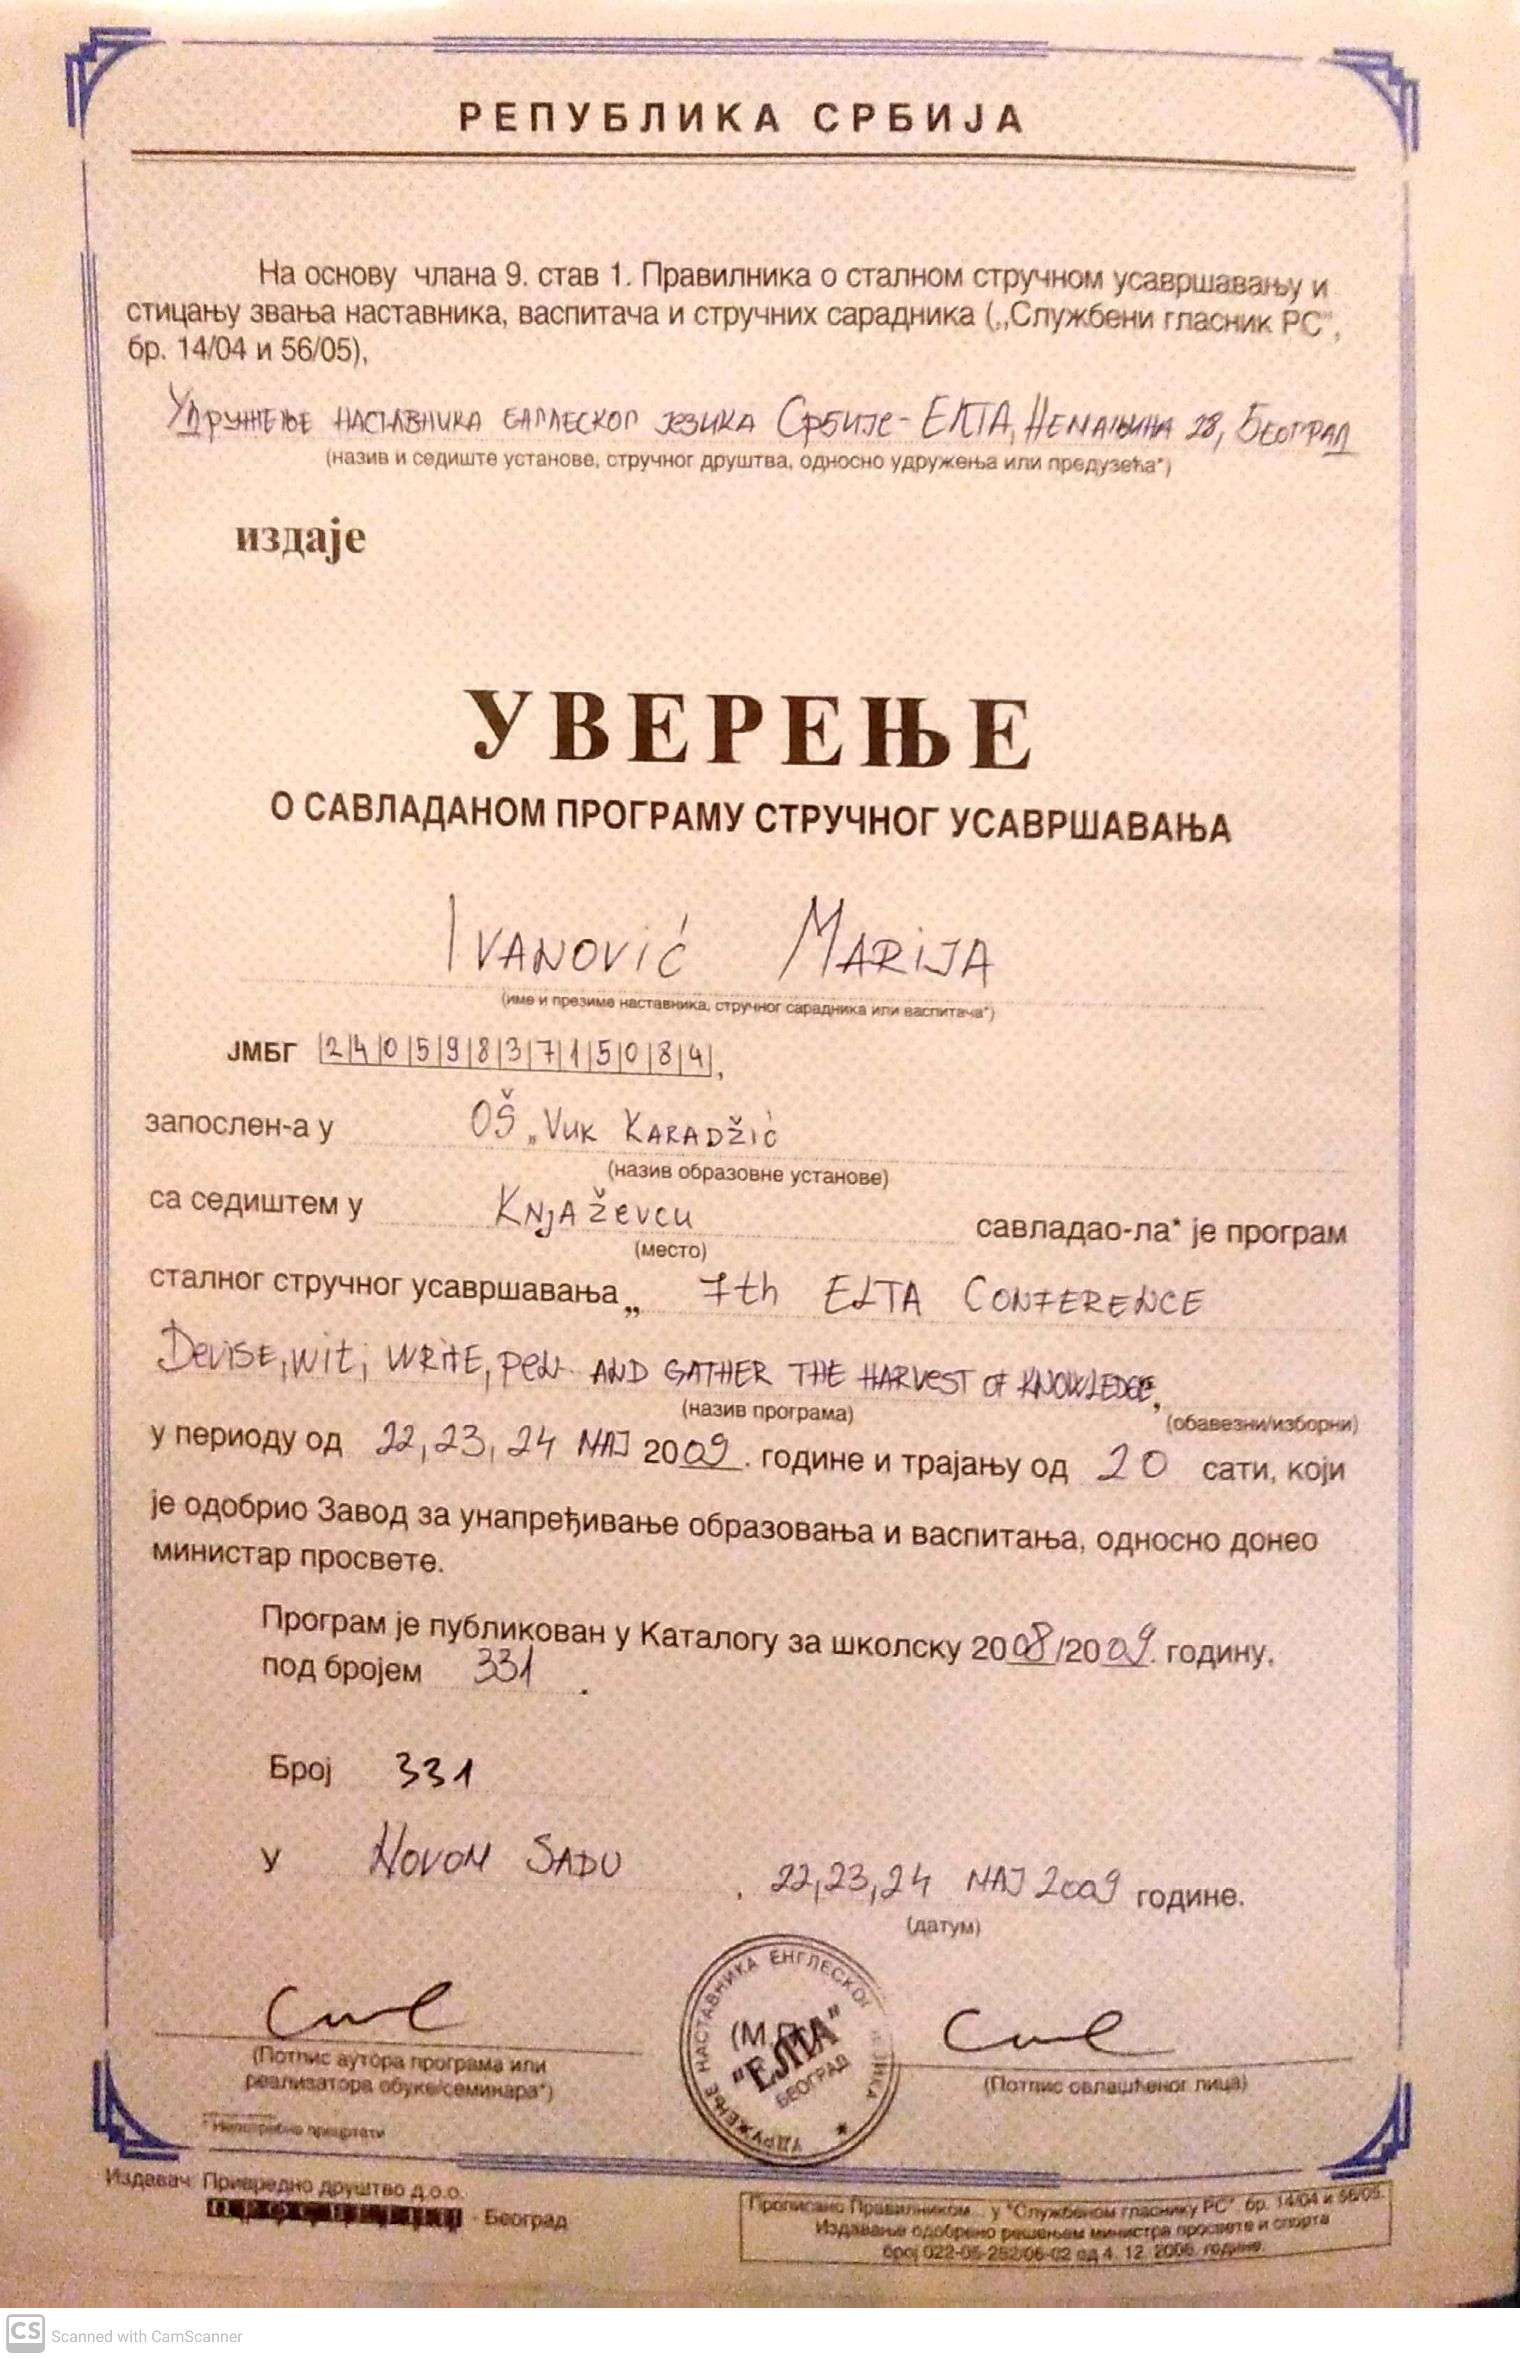 РЕПУБЛИКА СРБИЈА
На основу члана 9. став 1. Правилника о сталном стручном усавршавању и
стицању звања наставника, васпитача и стручних сарадника („Службени гласник РС",
бр. 14/04 и 56/05),
Удружење наставника енглеског језика Србије - ЕЛТА, Немањина 28, Београд
(назив и седиште установе, стручног друштва, односно удружења или предузећа*)
издаје
УВЕРЕЊЕ
О САВЛАДАНОМ ПРОГРАМУ СТРУЧНОГ УСАВРШАВАЊА
IVANOVIĆ MARIJA
(име и презиме наставника, стручног сарадника или васпитача*)
ЈМБГ 2405983715084,
запослен-а у OŠ „VUK KARADŽIĆ
(назив образовне установе)
са седиштем у KNJAŽEVCU савладао-ла* је програм
(место)
сталног стручног усавршавања „ 7th ELTA CONFERENCE
DEVISE, WIT; WRITE, PEN AND GATHER THE HARVEST OF KNOWLEDGE,
(назив програма) (обавезни/изборни)
у периоду од 22, 23, 24 MAJ 2009. године и трајању од 20 сати, који
је одобрио Завод за унапређивање образовања и васпитања, односно донео
министар просвете.
Програм је публикован у Каталогу за школску 2008/2009. годину,
под бројем 331.
Број 331
У NOVOM SADU, 22, 23, 24 MAJ 2009 године.
(датум)
УДРУЖЕЊЕ НАСТАВНИКА ЕНГЛЕСКОГ ЈЕЗИКА
(М.П.)
"ЕЛТА"
БЕОГРАД
(Потпис аутора програма или
реализатора обуке/семинара*)
(Потпис овлашћеног лица)
* Непотребно прецртати
Издавач: Привредно друштво д.о.о.
- Београд
Прописано Правилником у "Службеном гласнику РС", бр. 14/04 и 56/05.
Издавање одобрено решењем министра просвете и спорта
број 022-05-252/06-02 од 4. 12. 2006. године.
CS Scanned with CamScanner